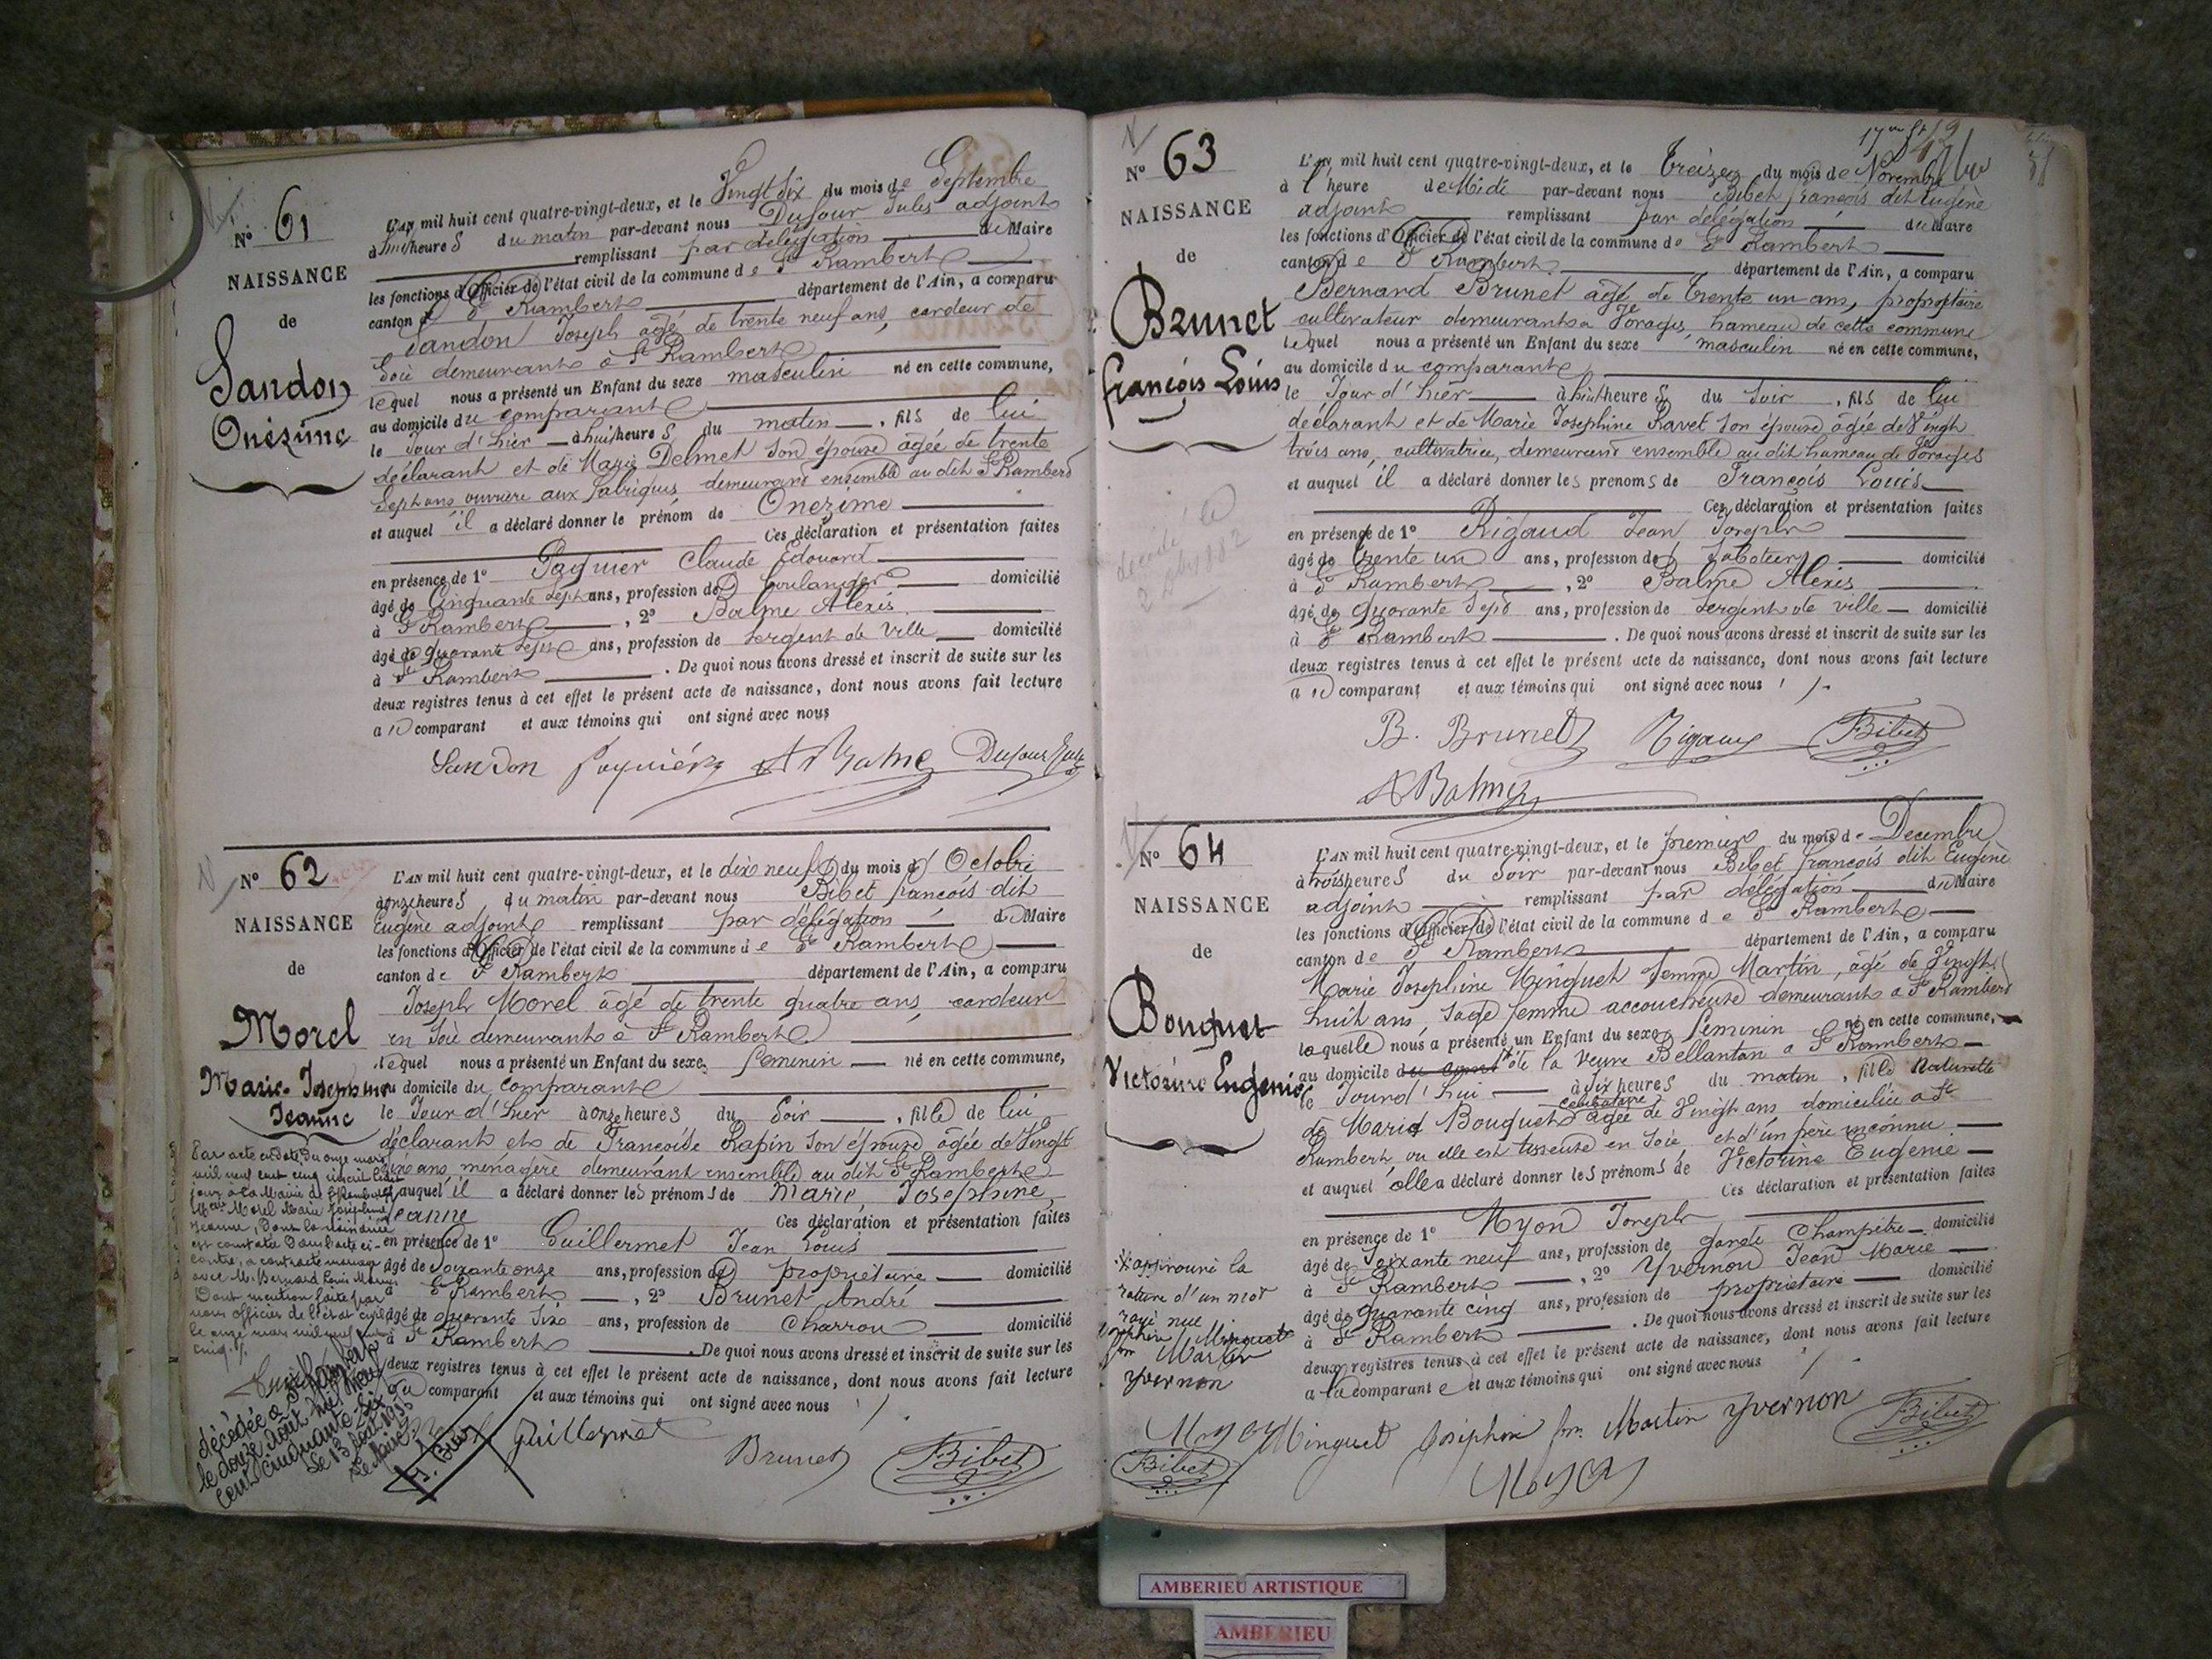 N° 61
NAISSANCE
de
Sandon
Onézime
L'AN mil huit cent quatre-vingt-deux, et le Vingt Six du mois de Septembre
à huit heures du matin par-devant nous Dufour Jules adjoint
remplissant par délégation du Maire
les fonctions d'Officier de l'état civil de la commune de St Rambert
canton de St Rambert département de l'Ain, a comparu
Sandon Joseph âgé de trente neuf ans, cardeur de
Soie demeurant à St Rambert
lequel nous a présenté un Enfant du sexe masculin né en cette commune,
au domicile du comparant
le Jour d'hier à huit heures du matin, fils de lui
déclarant et de Marie Delmet son épouse âgée de trente
Sept ans ouvrière aux fabriques demeurant ensemble au dit St Rambert
et auquel il a déclaré donner le prénom de Onezime
Ces déclaration et présentation faites
en présence de 1° Paquier Claude Edouard
âgé de Cinquante Sept ans, profession de boulanger domicilié
à St Rambert, 2° Balme Alexis
âgé de quarante sept ans, profession de Sergent de Ville domicilié
à St Rambert. De quoi nous avons dressé et inscrit de suite sur les
deux registres tenus à cet effet le présent acte de naissance, dont nous avons fait lecture
au comparant et aux témoins qui ont signé avec nous
Sandon Paquier A Balme Dufour Jules
N° 62
NAISSANCE
de
Morel
Marie-Josephine
Jeanne
L'AN mil huit cent quatre-vingt-deux, et le dix neuf du mois d'Octobre
à onze heures du matin par-devant nous Bibet françois dit
Eugène adjoint remplissant par délégation du Maire
les fonctions d'Officier de l'état civil de la commune de St Rambert
canton de St Rambert département de l'Ain, a comparu
Joseph Morel âgé de trente quatre ans, cardeur
en Soie demeurant à St Rambert
lequel nous a présenté un Enfant du sexe féminin né en cette commune,
au domicile du comparant
le Jour d'hier à onze heures du Soir, fille de lui
déclarant et de Françoise Rapin son épouse âgée de Vingt
Six ans ménagère demeurant ensemble au dit St Rambert
et auquel il a déclaré donner les prénoms de Marie, Josephine,
Jeanne Ces déclaration et présentation faites
en présence de 1° Guillermet Jean Louis
âgé de Soixante onze ans, profession de propriétaire domicilié
à St Rambert, 2° Brunet André
âgé de quarante Six ans, profession de Charron domicilié
à St Rambert. De quoi nous avons dressé et inscrit de suite sur les
deux registres tenus à cet effet le présent acte de naissance, dont nous avons fait lecture
au comparant et aux témoins qui ont signé avec nous
Guillermet Brunet Bibet
Par acte en date du onze mars
mil neuf cent cinq inscrit
jour à la Mairie de St Rambert
Morel Marie Joséphine
Jeanne, dont la naissance
est constatée dans l'acte ci-
contre, a contracté mariage
avec M. Bernard Louis
Dont mention faite par
nous officier de l'état civil
le onze mars mil neuf cent
cinq.
décédée à St Rambert
le douze Août mil neuf
cent cinquante-six
le 13 août 1956
Le Maire
N° 63
NAISSANCE
de
Brunet
François Louis
décédé le
L'AN mil huit cent quatre-vingt-deux, et le treize du mois de Novembre
à 1 heure de Midi par-devant nous Bibet françois dit Eugène
adjoint remplissant par délégation du Maire
les fonctions d'Officier de l'état civil de la commune de St Rambert
canton de St Rambert département de l'Ain, a comparu
Bernard Brunet âgé de trente un ans, propriétaire
cultivateur demeurant a Vorages hameau de cette commune
lequel nous a présenté un Enfant du sexe masculin né en cette commune,
au domicile du comparant
le Jour d'hier à huit heures du Soir, fils de lui
déclarant et de Marie Josephine Ravet son épouse âgée de Vingt
trois ans, cultivatrice, demeurant ensemble au dit hameau de Vorages
et auquel il a déclaré donner les prénoms de François Louis
Ces déclaration et présentation faites
en présence de 1° Rigaud Jean Joseph
âgé de trente un ans, profession de Sabotier domicilié
à St Rambert, 2° Balme Alexis
âgé de quarante Sept ans, profession de Sergent de ville domicilié
à St Rambert. De quoi nous avons dressé et inscrit de suite sur les
deux registres tenus à cet effet le présent acte de naissance, dont nous avons fait lecture
au comparant et aux témoins qui ont signé avec nous
B. Brunet Rigaud Bibet
A Balme
N° 64
NAISSANCE
de
Bouquet
Victorine Eugenie
L'AN mil huit cent quatre-vingt-deux, et le premier du mois de Decembre
à trois heures du Soir par-devant nous Bibet françois dit Eugène
adjoint remplissant par délégation du Maire
les fonctions d'Officier de l'état civil de la commune de St Rambert
canton de St Rambert département de l'Ain, a comparu
Marie Josephine Minguet femme Martin, âgé de Vingt
huit ans, Sage femme accoucheuse demeurant a St Rambert
laquelle nous a présenté un Enfant du sexe féminin né en cette commune,
au domicile de la Veuve Bellantan a St Rambert
le Jourd'hui à dix heures du matin, fille Naturelle
célibataire
de Marie Bouquet agée de Vingt ans domiciliée a St
Rambert ou elle est tisseuse en Soie et d'un père inconnu
et auquel elle a déclaré donner les prénoms de Victorine Eugenie
Ces déclaration et présentation faites
en présence de 1° Myon Joseph
âgé de Soixante neuf ans, profession de garde Champêtre domicilié
à St Rambert, 2° Yvernon Jean Marie
âgé de quarante cinq ans, profession de propriétaire domicilié
à St Rambert. De quoi nous avons dressé et inscrit de suite sur les
deux registres tenus à cet effet le présent acte de naissance, dont nous avons fait lecture
a la comparante et aux témoins qui ont signé avec nous
approuvé la
rature d'un mot
rayé nul
Josephine Minguet
fm Martin
Yvernon
Myon Minguet Joséphine fm Martin Yvernon Bibet
Bibet Myon
AMBERIEU ARTISTIQUE
AMBERIEU